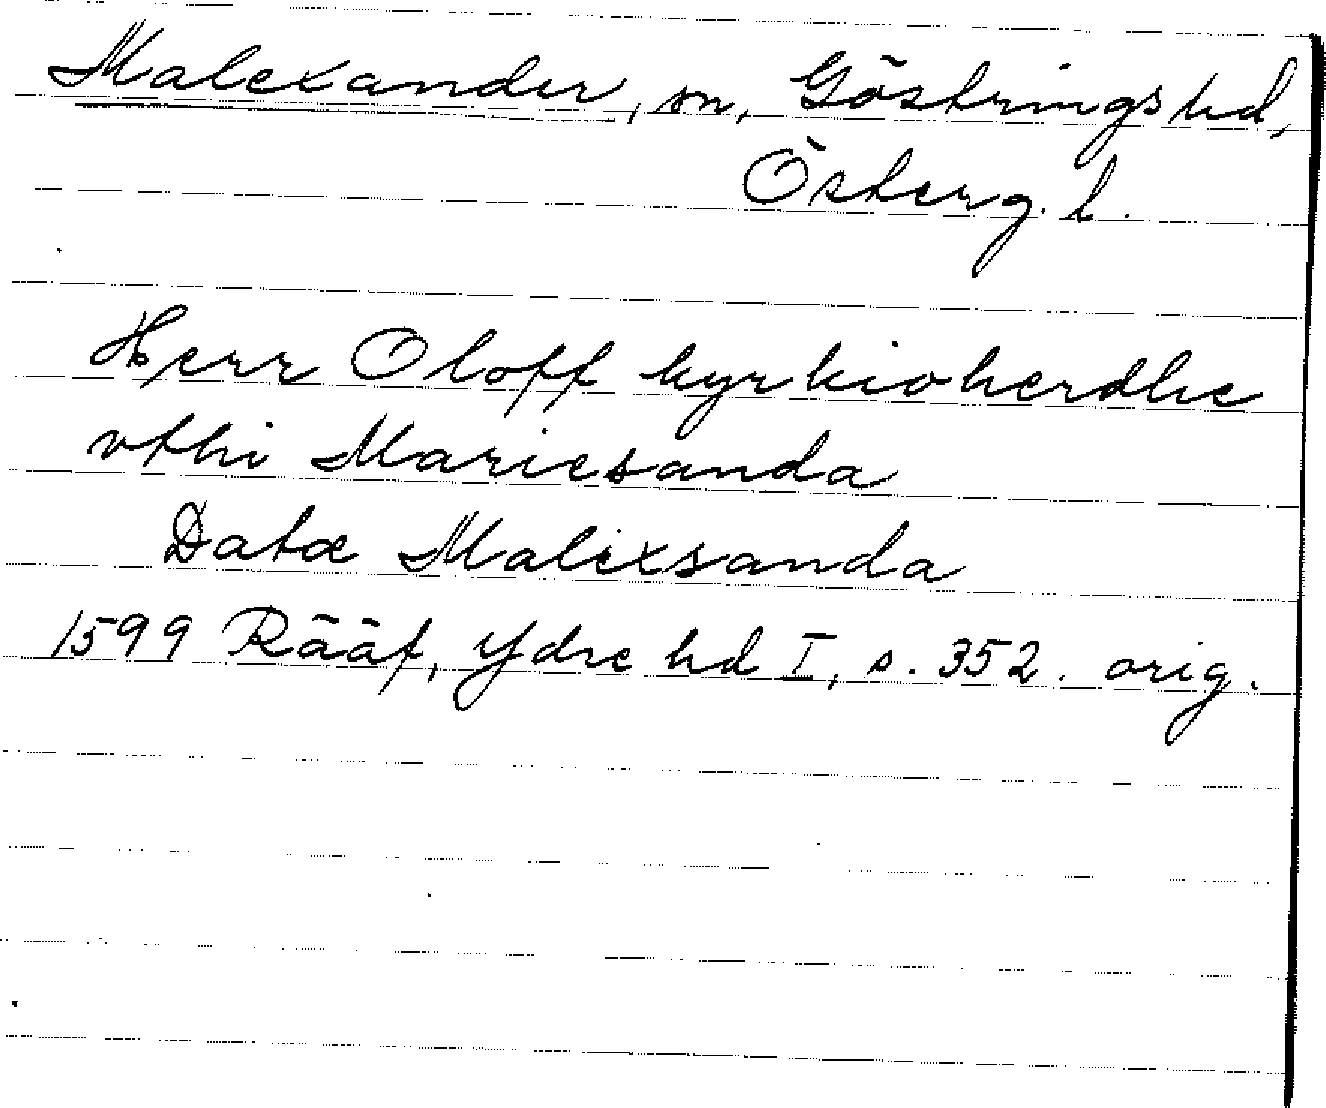 Malexander, sn, Göstrings hd,
Österg. l.
Herr Oloff kyrkioherdhe
vthi Mariesanda
Datæ Malixsanda
1599 Rääf, Ydre hd I, s. 352. orig.